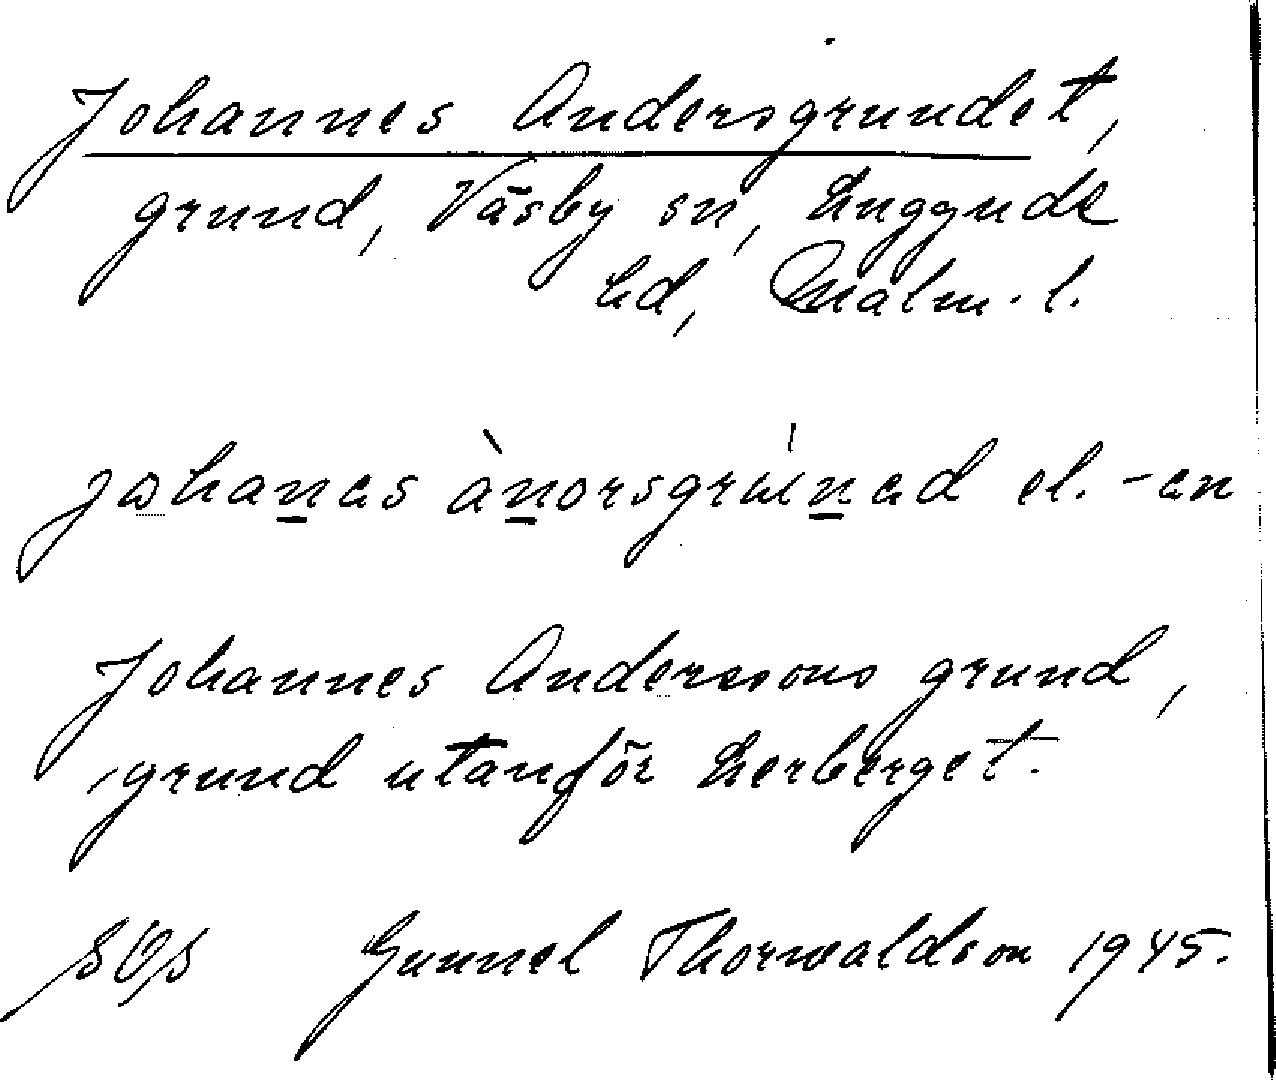 Johannes Andersgrundet,
grund, Väsby sn, Luggude
hd, Malm. l.
johanas ànorsgruínad el. -an
Johannes Anderssons grund,
grund utanför Lerberget.
SOS Gunnel Thorwaldson 1945.